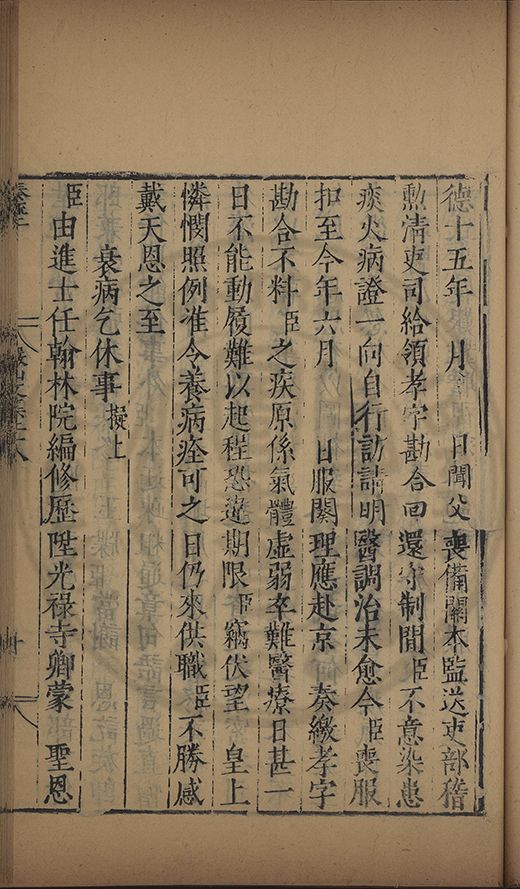 德十五年　月　　日聞父喪備關本監送吏部稽
勲清吏司給領孝字勘合回還守制間臣不意染患
痰火病證一向自行訪請明醫調治未愈今臣喪服
扣至今年六月　　日服闋理應赴京　奏繳孝字
勘合不料臣之疾原係氣體虛弱卒難醫療日甚一
日不能動履難以起程恐違期限臣竊伏望　皇上
憐憫照例准令養病痊可之日仍來供職臣不勝感
戴天恩之至
衰病乞休事擬上
臣由進士任翰林院編修歷陞光祿寺卿蒙　聖恩